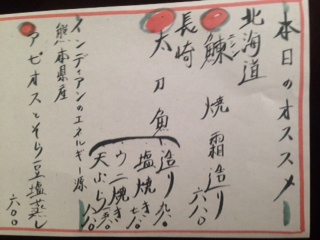 本日のオススメ
北海道
鰊 ニシン 焼霜造り 六八〇
長崎
太刀魚 造り 九八〇
塩焼き 七八〇
ウニ焼き
天ぷら 八八〇
インディアンのエネルギー源
熊本県産
アピオスとそら豆塩蒸し
六〇〇